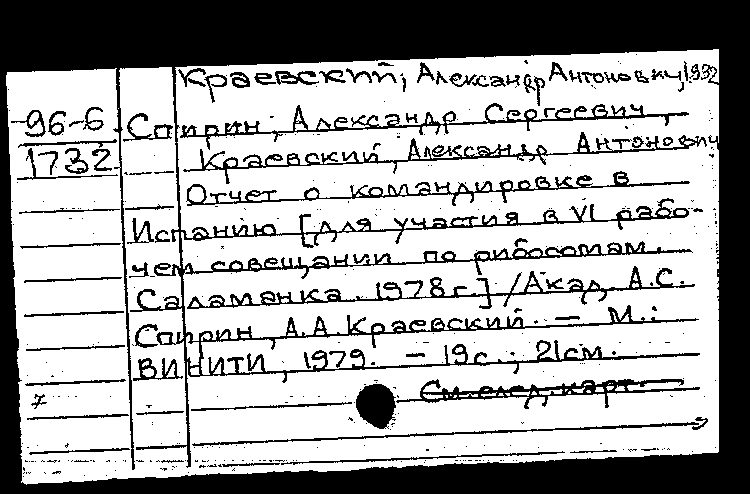 Краевский, Александр Антонович, 1932
96-6
1732
Спирин, Александр Сергеевич,
Краевский, Александр Антонович
Отчет о командировке в
Испанию [для участия в VI рабо-
чем совещании по рибосомам.
Саламанка. 1978г.] / Акад. А.С.
Спирин, А.А. Краевский. — М.:
ВИНИТИ, 1979. — 19с.; 21см.
См. след. карт.